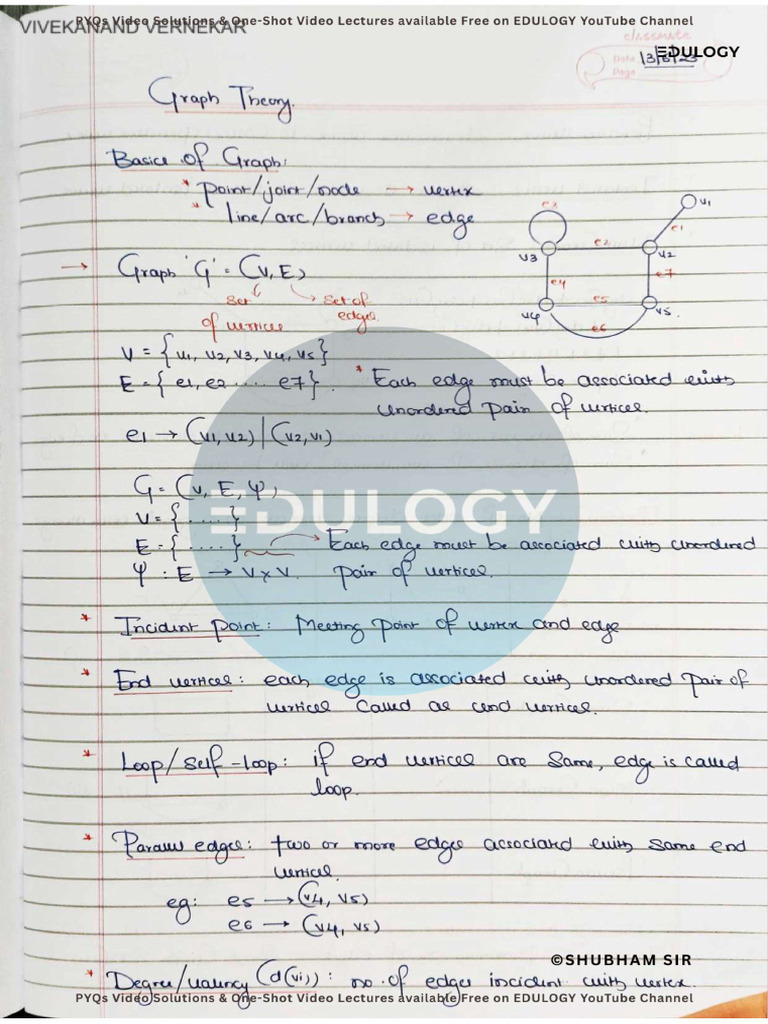 PYQs Video Solutions & One-Shot Video Lectures available Free on EDULOGY YouTube Channel
VIVEKANAND VERNEKAR
classmate
EDULOGY
Date
Page
Graph Theory.
Basics of Graph:
* point/joint/node → vertex
* line/arc/branch → edge
e3 v1
e1
v3 e2 v2
e4 e7
e5
v4 v5.
e6
→ Graph 'G' = (V, E)
Set Set of
of vertices edges.
V = {v1, v2, v3, v4, v5}
E = {e1, e2 ..... e7}. * Each edge must be associated with
unordered pair of vertices.
e1 → (v1, v2) | (v2, v1)
G = (V, E, Ψ)
V = {.....}
EDULOGY
E = {.....} → Each edge must be associated with unordered
Ψ : E → V x V. pair of vertices.
* Incident point: Meeting point of vertex and edge
* End vertices: each edge is associated with unordered pair of
vertices called as end vertices.
* Loop/self-loop: if end vertices are same, edge is called
loop.
* Parallel edges: two or more edges associated with same end
vertices.
eg: e5 → (v4, v5)
e6 → (v4, v5)
©SHUBHAM SIR
* Degree/valency (d(vi)): no. of edges incident with vertex.
PYQs Video Solutions & One-Shot Video Lectures available Free on EDULOGY YouTube Channel